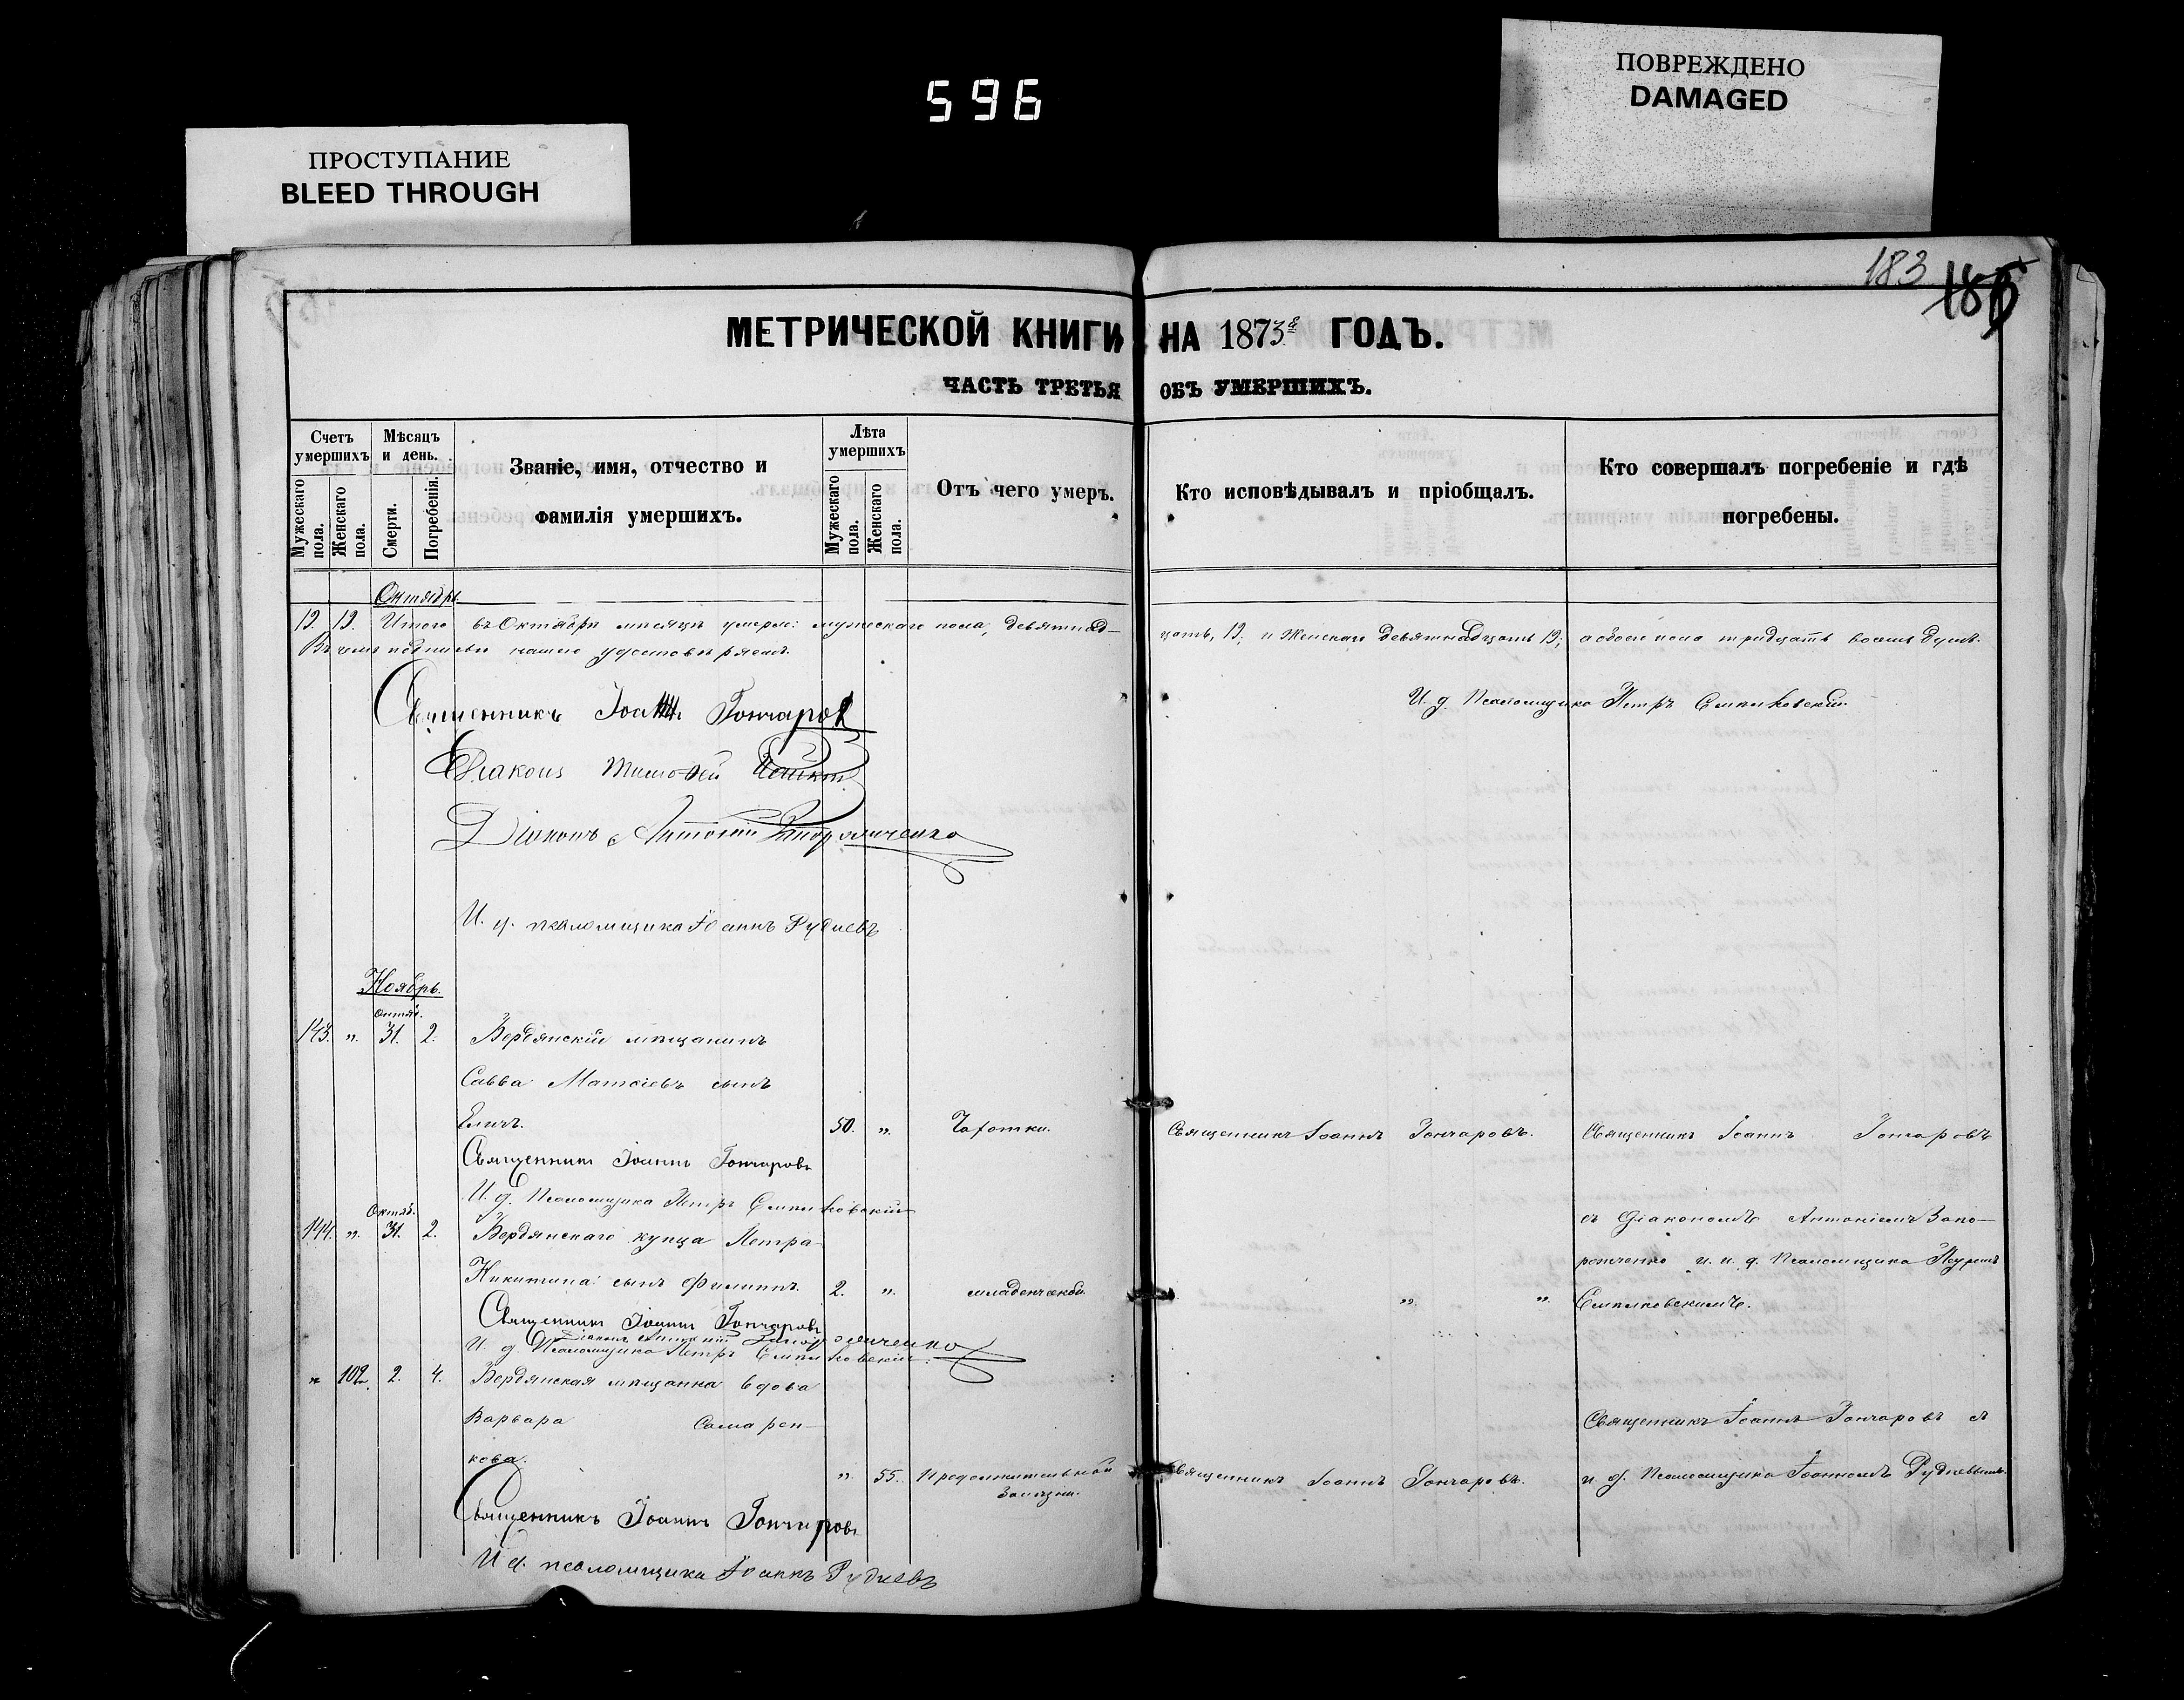 596
ПРОСТУПАНИЕ
BLEED THROUGH
ПОВРЕЖДЕНО
DAMAGED
183
МЕТРИЧЕСКОЙ КНИГИ НА 1873й ГОДЪ.
ЧАСТЬ ТРЕТЬЯ ОБЪ УМЕРШИХЪ.
Счетъ умершихъ
Мужескаго пола.
Женскаго пола.
Мѣсяцъ и день.
Смерти.
Погребенія.
Званіе, имя, отчество и
фамилія умершихъ.
Лѣта умершихъ
Мужескаго пола.
Женскаго пола.
Отъ чего умеръ.
Кто исповѣдывалъ и пріобщалъ.
Кто совершалъ погребеніе и гдѣ
погребены.
Октябрь.
19. 19. Итого въ Октябрѣ мѣсяцѣ умерло: мужескаго пола, девятнад-
цать, 19, и Женскаго девятнадцать 19, а обоего пола тридцать восемь душъ.
Въ чемъ подписью нашею удостовѣряемъ.
Священникъ Іоаннъ Гончаровъ
И. д. Псаломщика Петръ
Діаконъ Тимоѳей
Діаконъ Антоній Запорожченко
И. д. псаломщика Іоаннъ Рудневъ
Ноябрь.
Октяб.
143. „ 31. 2. Бердянскій мѣщанинъ
Савва Матѳіевъ сынъ
50. „ Чахотки. Священникъ Іоаннъ Гончаровъ. Священникъ Іоаннъ Гончаровъ
Священникъ Іоаннъ Гончаровъ
И. д. Псаломщика Петръ
Октяб.
съ Діакономъ Антоніемъ Запо-
144. „ 31. 2. Бердянскаго купца Петра
рожченко и и. д. Псаломщика Петромъ
Никитина сынъ Филиппъ. 2. „ младенческой. „ „
Священникъ Іоаннъ Гончаровъ
Діаконъ Антоній Запорожченко
И. д. Псаломщика Петръ
„ 102. 2. 4. Бердянская мѣщанка вдова
Варвара Самарен-
Священникъ Іоаннъ Гончаровъ съ
кова. „ 55. Продолжительной Священникъ Іоаннъ Гончаровъ. и. д. Псаломщика Іоанномъ Рудневымъ.
Священникъ Іоаннъ Гончаровъ
И д. псаломщика Іоаннъ Рудневъ